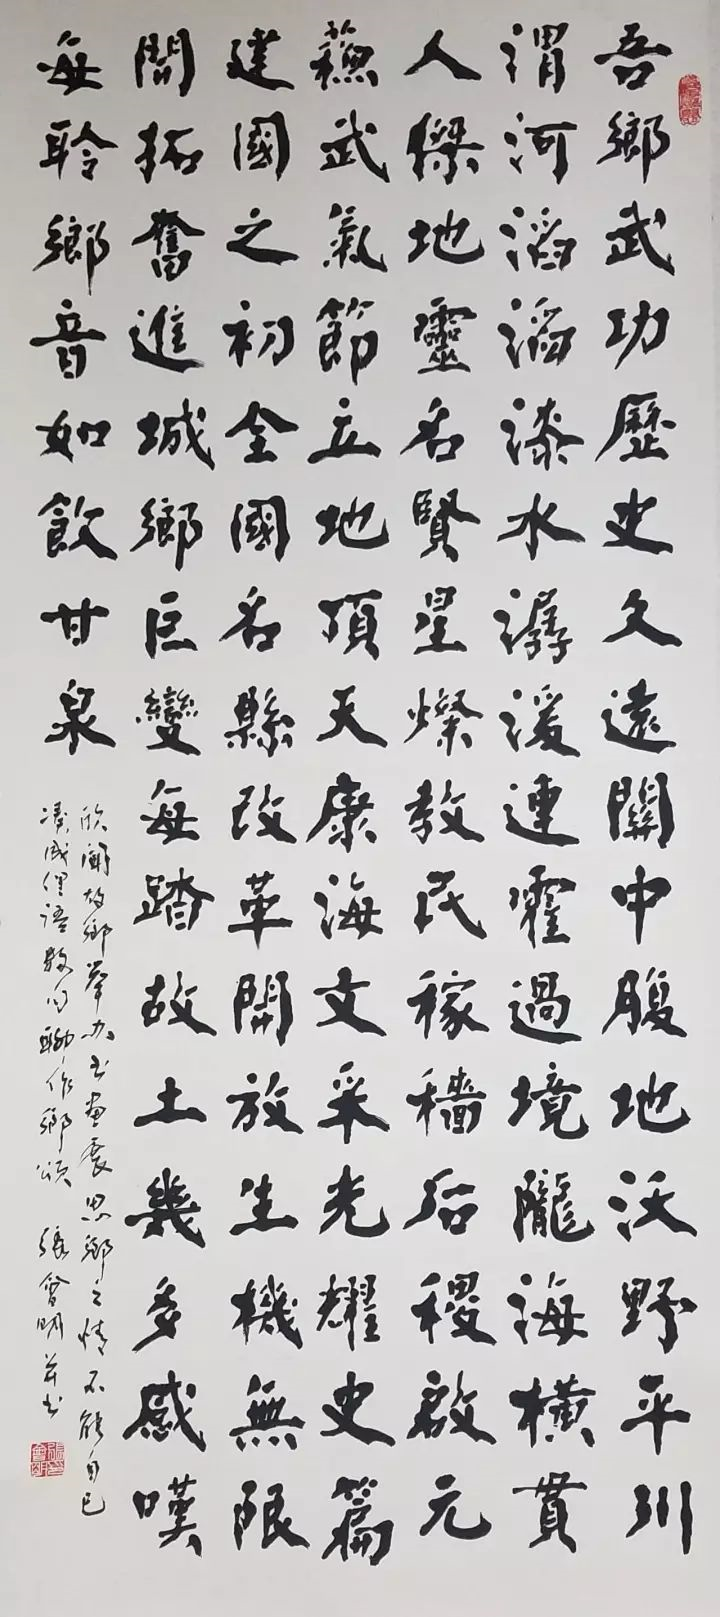 吾鄉武功歷史久遠關中腹地沃野平川
渭河滔滔漆水潺湲連霍過境隴海橫貫
人傑地靈名賢星燦教民稼穡后稷啟元
蘇武氣節立地頂天康海文采光耀史篇
建國之初全國名縣改革開放生機無限
開拓奮進城鄉巨變每踏故土幾多感嘆
每聆鄉音如飲甘泉
欣聞故鄉舉办书画展思鄉之情不能自已
湊成俚語數句聊作鄉頌 張會明并书